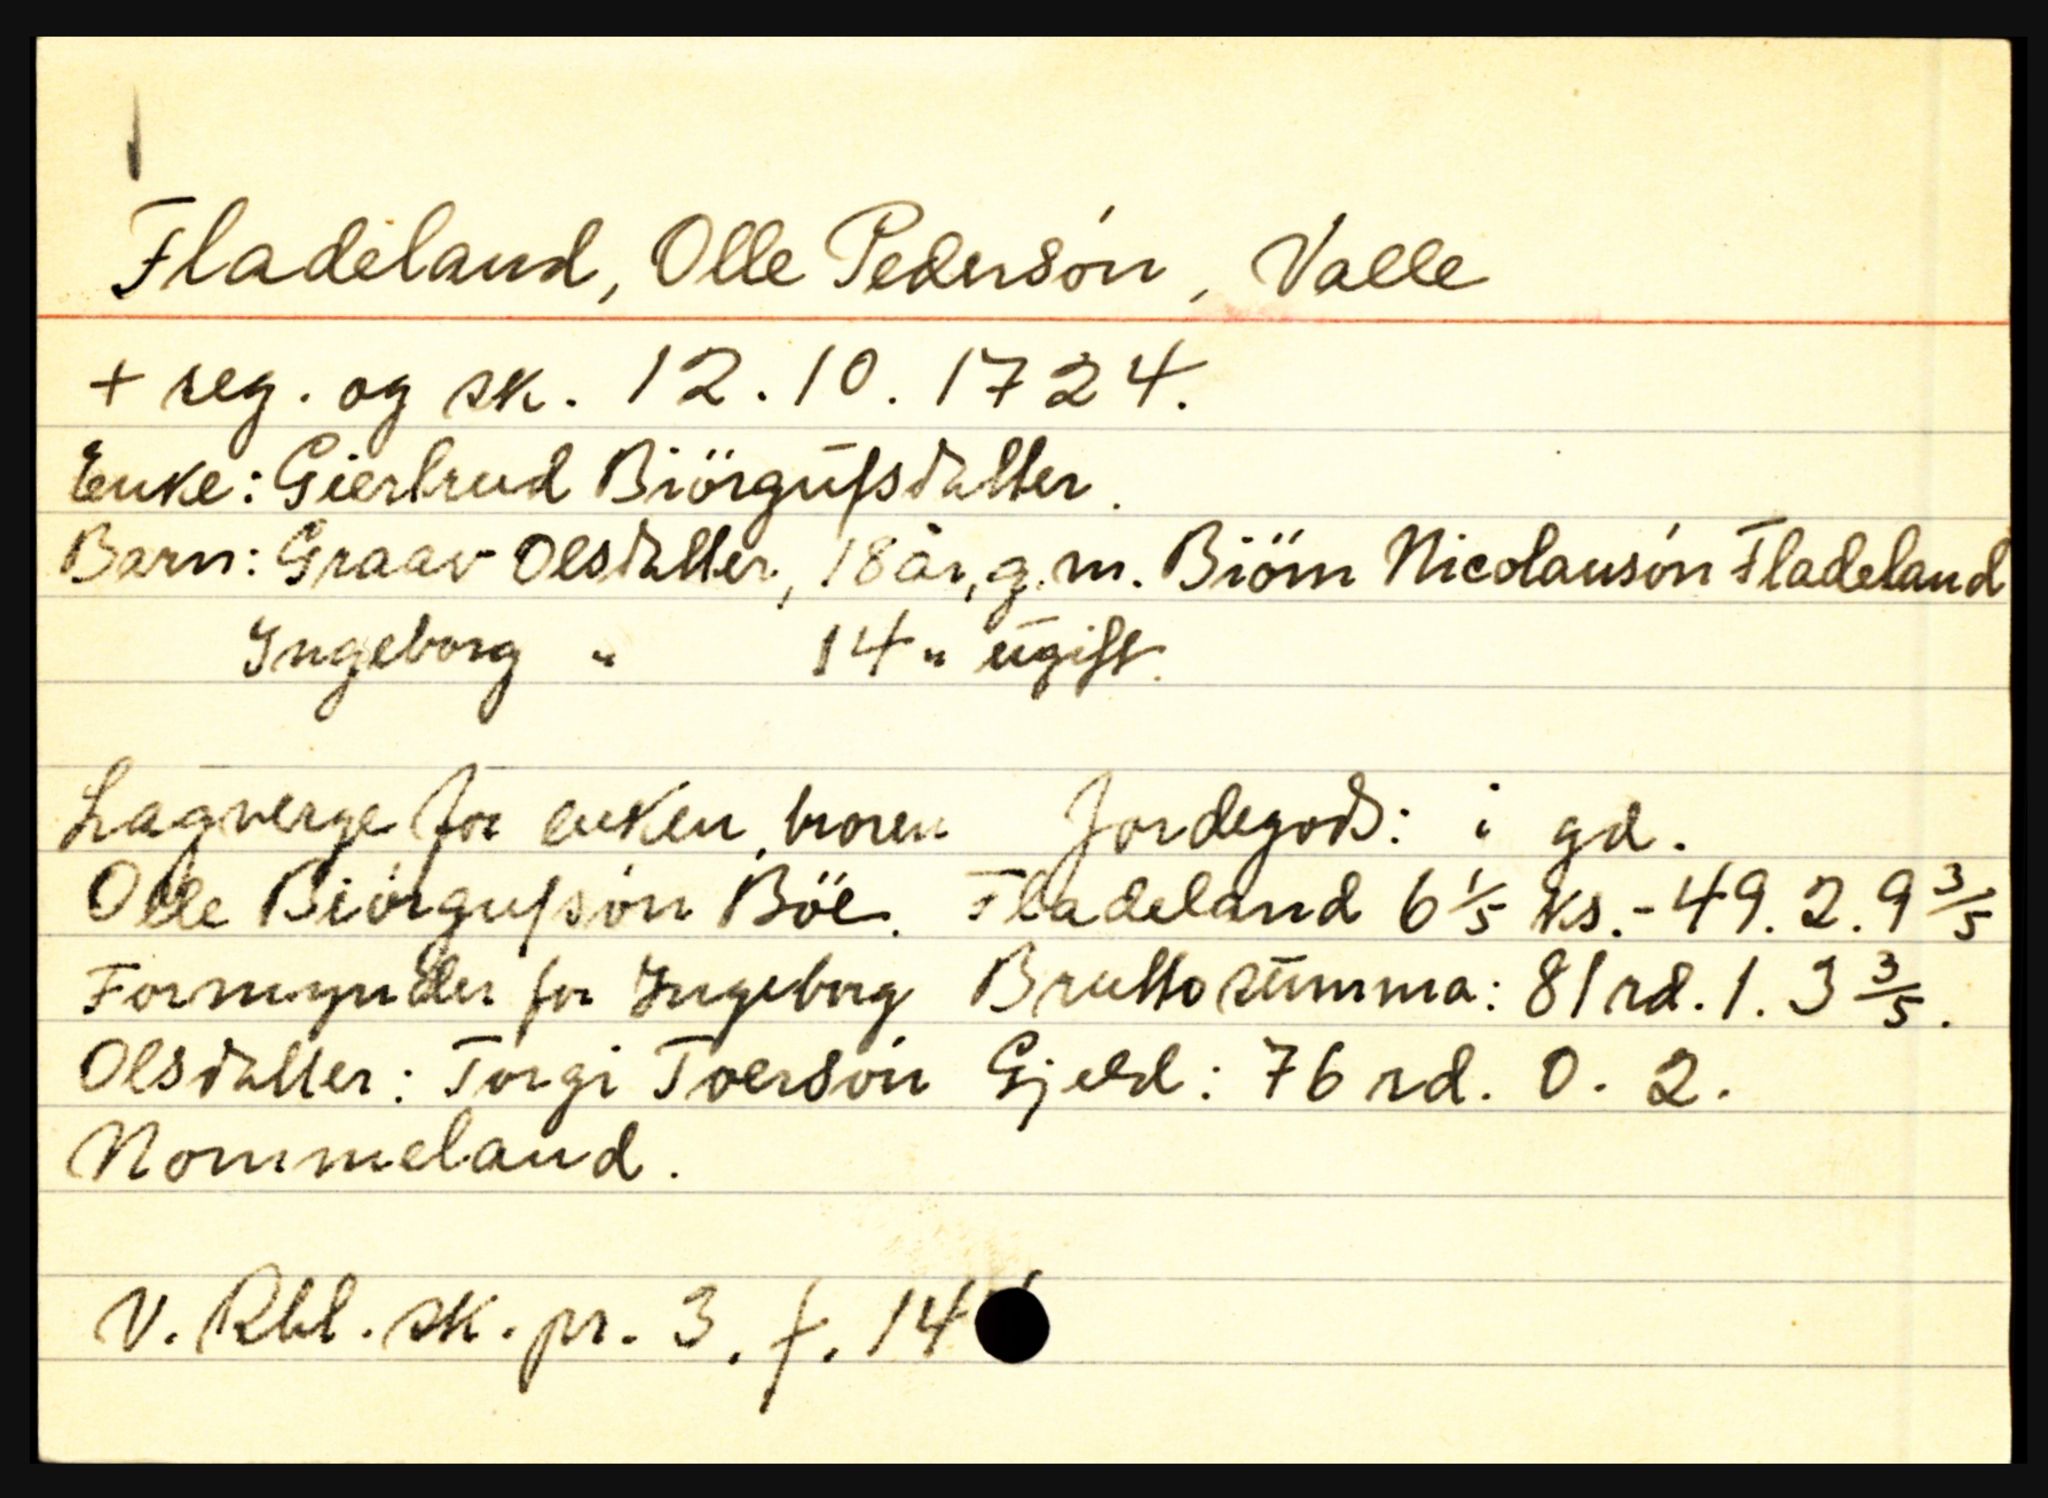 Fladeland, Olle Pedersón, Valle
+ reg. og sk. 12.10.1724.
Enke: Giertrud Biörgufsdatter.
Barn: Graav Olsdatter, 18 år, g.m. Biörn Nicolausón Fladeland
Ingeborg " 14 " ugift.
Lagverge for enken, broren
Olle Biörgufsón Böe.
Formynder for Ingeborg
Olsdatter: Torgi Toersón
Nommeland.
Jordegods: i gd.
Fladeland 6 1/5 ks. - 49. 2. 9 3/5
Brutto summa: 81 rd. 1. 3 3/5.
Gjeld: 76 rd. 0. 2.
V. Rbl. sk. pr. 3. f. 14